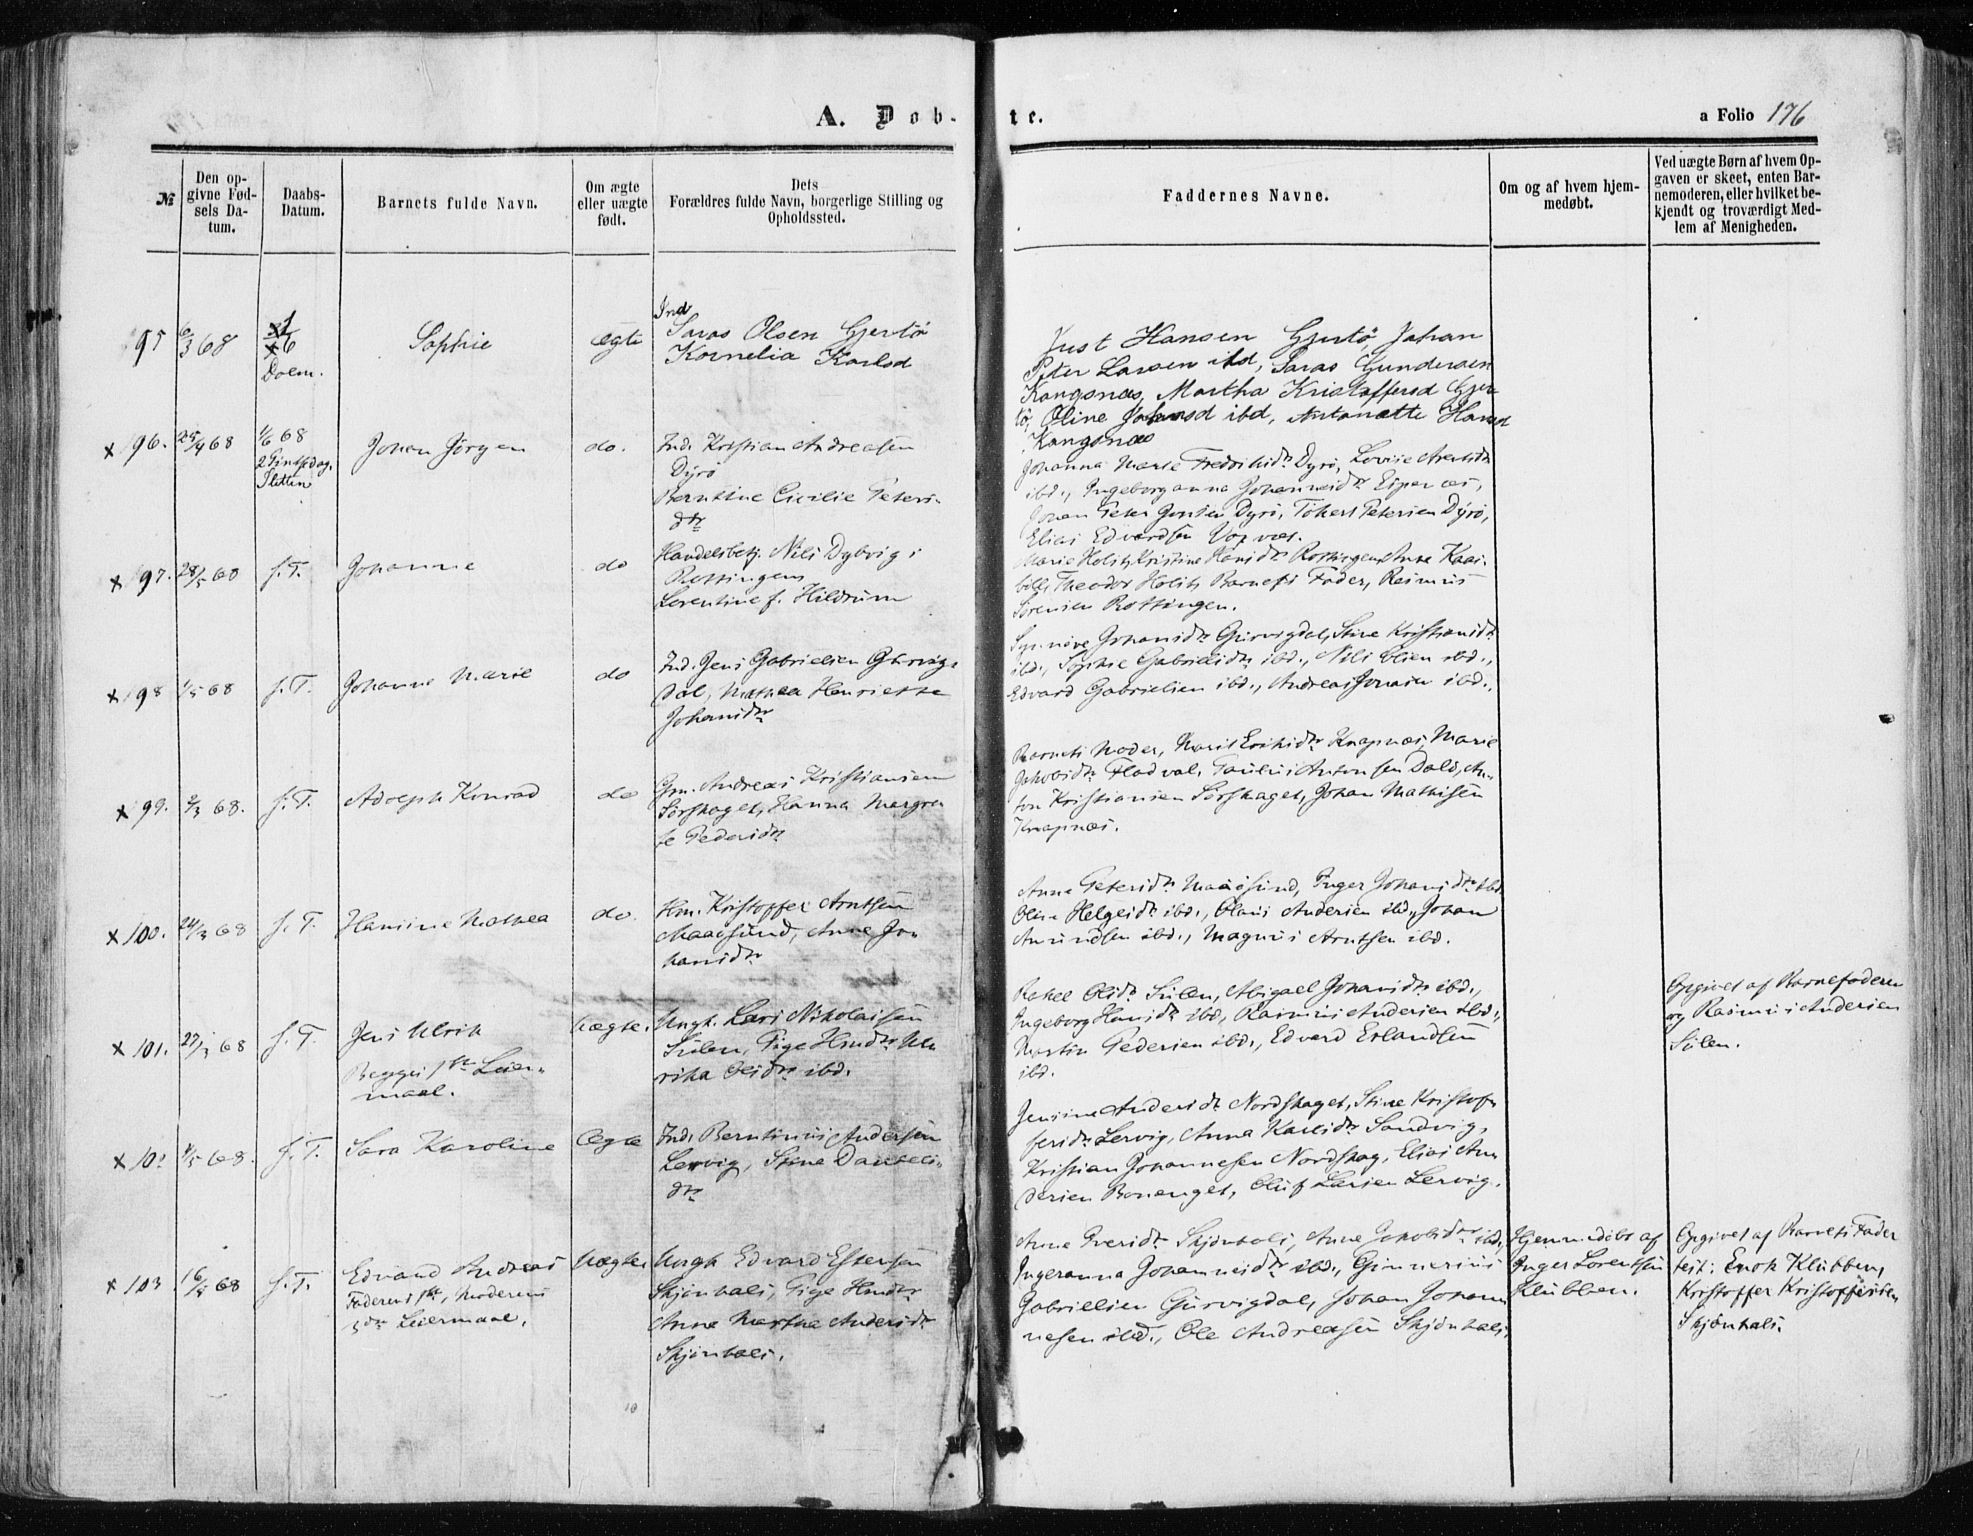 A. Døb-
te.
a Folio 176
№
Den op-
givne Fød-
sels Da-
tum.
Daabs-
Datum.
Barnets fulde Navn.
Om ægte
eller uægte
født.
Dets
Forældres fulde Navn, borgerlige Stilling og
Opholdssted.
Faddernes Navne.
Om og af hvem hjem-
medøbt.
Ved uægte Børn af hvem Op-
gaven er skeet, enten Bar-
nemoderen, eller hvilket be-
kjendt og troværdigt Med-
lem af Menigheden.
95
6/3 68
Sophie
ægte
Ind
Olsen Gjertø
Kornelia Karlsd
Just Hansen Gjertø, Johan
Peter Larsen ibd, Gundersen
Martha Kristoffersd Gjer
tø, Oline ibd, Antonette Hansd
x 96.
25/4 68
1/6 68
2 Pintsedag.
Johan Jørgen
do.
Ind. Kristian Andreasen
Dyrø
Berntine Cicilie Peters-
dtr
Johanna Marie Dyrø, Lovise
ibd., Ingeborganna Johannesdtr
Johan Peter Jensen Dyrø, Petersen Dyrø,
Elias Edvardsen
x 97.
28/5 68
s. T.
Johanne
do
Handelsbetj. Nils Dybvig i
Rottingen
Lorentine f. Hildrum
Marie Holst, Kristine Hansdtr Rottingen, Anne
Theodor Holst, Barnets Fader, Rasmus
Sørensen Rottingen.
x 98
1/5 68
s. T.
Johanne Marie
do
Ind. Jens Gabrielsen Gjervig-
dal, Mathea Henriette
Johansdtr
Johansdtr Gjervigdal, Stine Kristiansdtr
ibd., Sophie Gabrielsdtr ibd., Nils Olsen ibd.,
Edvard Gabrielsen ibd., Andreas Jonasen ibd.,
x 99.
2/3 68.
s. T.
Adolph Konrad
do
Gm. Andreas Kristiansen
Sørskaget, Hanna Margre
te Pedersdtr
Barnets Moder, Marit Knapnæs, Marie
Jakobsdtr Fladval, Paulus Antonsen Dale, An-
ton Kristiansen Sørskaget, Johan Mathisen
Knapnæs.
x 100.
24/3 68
s. T.
Hansine Mathea
do.
Hm. Kristoffer Arntsen
Maaøsund, Anne Jo-
hansdtr
Anne Petersdtr Maaøsund, Inger Johansdtr ibd.
Olina Helgesdtr ibd., Olaus Andersen ibd., Johan
Amundsen ibd., Magnus Arntsen ibd.
x 101.
27/3 68
s. T.
Jens Ulrik
Begges 1ste Leier-
maal.
Uægte.
Ungk. Lars Nikolaisen
Sulen, Pige Hmdsr Ul
rika Olsdtr ibd.
Rakel Olsdtr Sulen, Abigael Johansdtr ibd.,
Ingeborg Hansdtr ibd, Rasmus Andersen ibd.,
Martin Pedersen ibd., Edvard Erlandsen
ibd.
Opgivet af Barnefaderen
og Rasmus Andersen
Sulen.
x 102
4/5 68.
s. T.
Sara Karoline
Ægte
Ind. Berntinus Andersen
Lervig, Stine Daniels-
dtr
Jensine Andersdtr Nordskaget, Stine Kristof-
fersdtr Lervig, Anna Karlsdtr Sandvig,
Kristian Johannesen Nordskag, Elias An-
dersen Bonenget, Oluf Larsen Lervig.
x 103
16/4 68
s. T.
Edvard Andreas
Faderens 1ste, Moderens
3die Leiermaal.
Uægte
Ungk Edvard Estersen
Skjønhals, Pige Hmdsr
Anne Martha Andersdtr
Skjønhals.
Anne Iversdtr Skjønhals, Anne Jakobsdtr ibd,
Ingeranna Johannesdtr ibd., Ginnerius
Gabrielsen Gjervigdal, Johan Johan-
nesen ibd., Ole Andreasen Skjønhals.
Hjemmedøbt af
Inger Lorentsen
Klubben.
Opgivet af Barnets Fader
test: Enok Klubben,
Kristoffer Kristoffersen
Skjønhals.